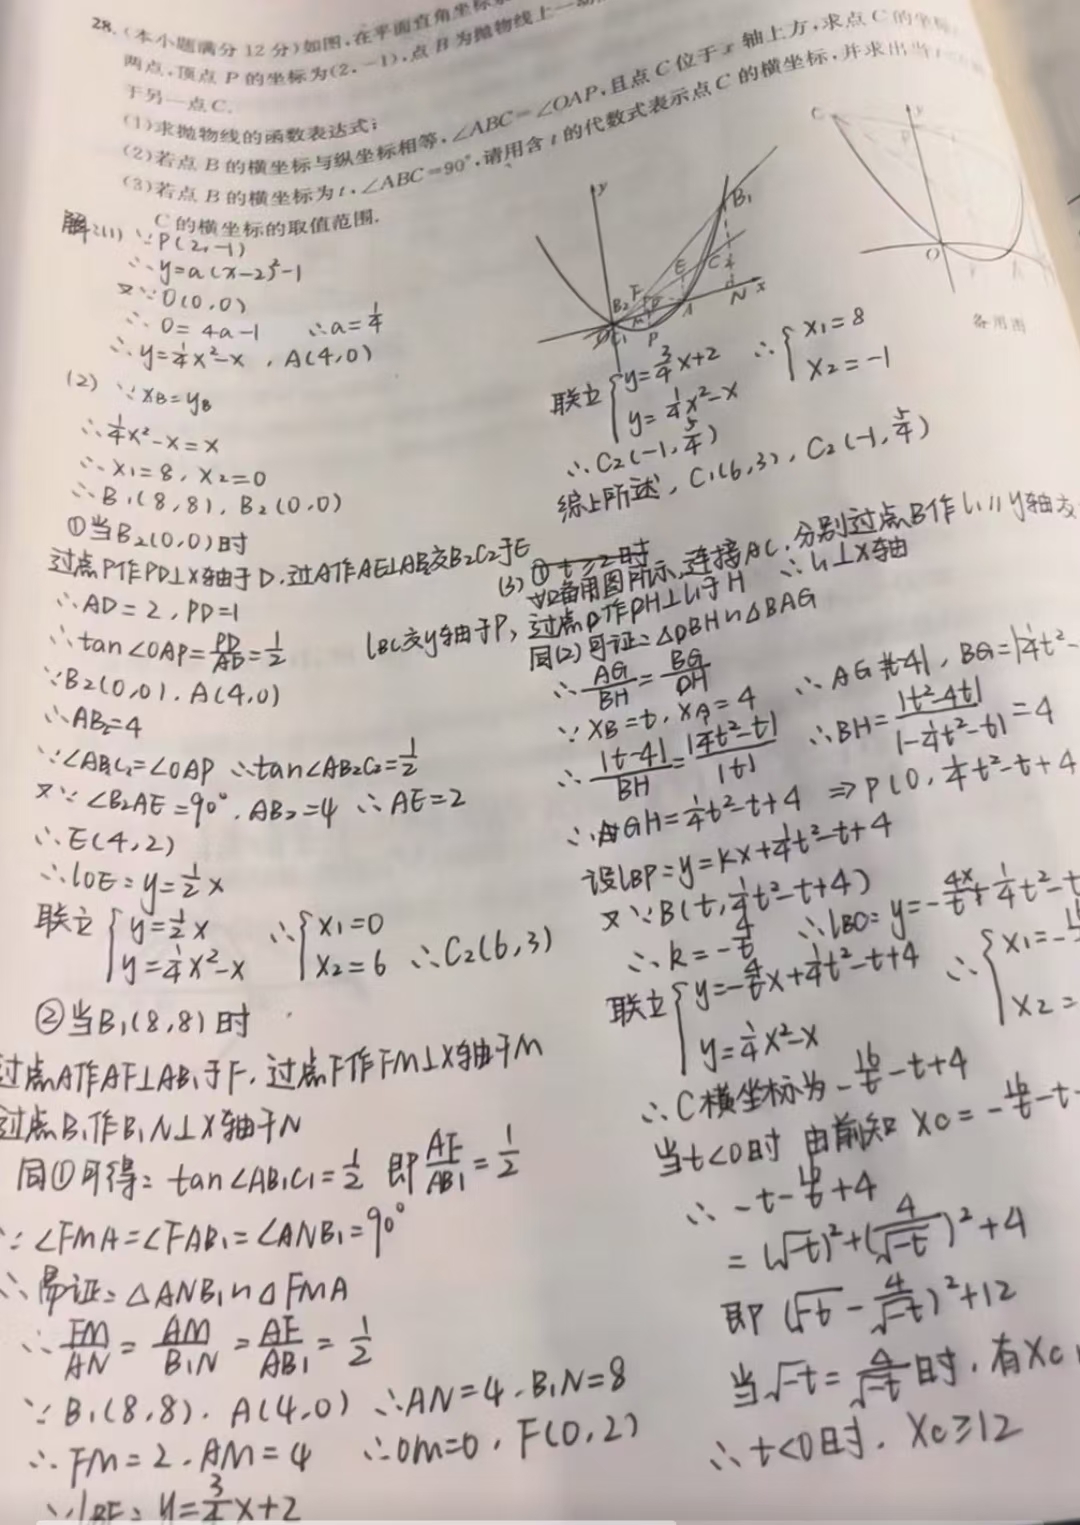 28.(本小题满分12分)如图,在平面直角坐标
两点,顶点P的坐标为(2,-1),点B为抛物线上一动
于另一点C.
(1)求抛物线的函数表达式;
(2)若点B的横坐标与纵坐标相等,∠ABC=∠OAP,且点C位于x轴上方,求点C的坐标
(3)若点B的横坐标为t,∠ABC=90°,请用含t的代数式表示点C的横坐标,并求出当t
C的横坐标的取值范围.
解:(1) ∵P(2,-1)
∴y=a(x-2)²-1
又∵O(0,0)
∴0=4a-1 ∴a=1/4
∴y=1/4x²-x , A(4,0)
(2) ∵xB=yB
∴1/4x²-x=x
∴x1=8, x2=0
∴B1(8,8), B2(0,0)
①当B2(0,0)时
过点P作PD⊥X轴于D,过A作AE⊥AB交B2C2于E
∴AD=2, PD=1
∴tan∠OAP=PD/AD=1/2
∵B2(0,0), A(4,0)
∴AB2=4
∵∠AB2C2=∠OAP ∴tan∠AB2C2=1/2
又∵∠B2AE=90°, AB2=4 ∴AE=2
∴E(4,2)
∴lOE=y=1/2x
联立{y=1/2x y=1/4x²-x ∴{x1=0 x2=6 ∴C2(6,3)
②当B1(8,8)时
过点A作AF⊥AB1于F,过点F作FM⊥X轴于M
过点B1作B1N⊥X轴于N
同①可得:tan∠AB1C1=1/2 即AF/AB1=1/2
∵∠FMA=∠FAB1=∠ANB1=90°
∴易证:△ANB1∽△FMA
∴FM/AN=AM/B1N=AF/AB1=1/2
∵B1(8,8), A(4,0) ∴AN=4, B1N=8
∴FM=2, AM=4 ∴OM=0, F(0,2)
∴lBF:y=3/4x+2
y
B1
E
C
F
B2
D
C1
P
A
N
x
C
y
O
A
备用图
联立{y=3/4x+2 y=1/4x²-x ∴{x1=8 x2=-1
∴C2(-1,5/4)
综上所述, C1(6,3), C2(-1,5/4)
(3) ①t≥2时
如备用图所示,连接AC,分别过点B作l1∥y轴交
lBC交y轴于P,过点P作PH⊥l1于H ∴l1⊥X轴
同(2)可证:△PBH∽△BAG
∴AG/BH=BG/PH
∵XB=t, XA=4 ∴AG=|t-4|, BG=|1/4t²-
∴|t-4|/BH=|1/4t²-t|/|t| ∴BH=|t²-4t|/|-1/4t²-t|=4
∴GH=1/4t²-t+4 ⇒P(0,1/4t²-t+4
设lBP=y=kx+1/4t²-t+4
又∵B(t,1/4t²-t+4)
∴k=-4/t ∴lBC=y=-4x/t+1/4t²-t
联立{y=-4/tx+1/4t²-t+4 y=1/4x²-x ∴{x1=- x2=
∴C横坐标为-16/t-t+4
当t<0时 由前知 Xc=-16/t-t
∴-t-16/t+4
=(√-t)²+(4/√-t)²+4
即(√-t-4/√-t)²+12
当√-t=4/√-t时,有Xc
∴t<0时, Xc≥12